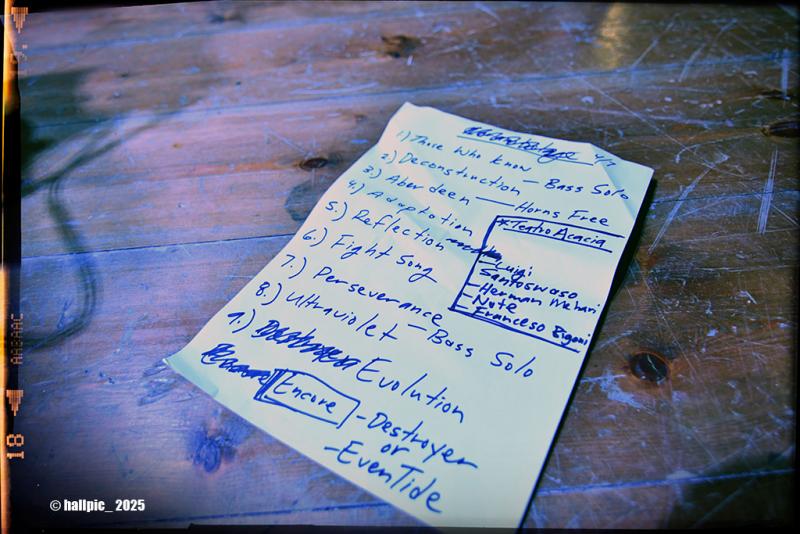 4/7
1) Those Who Know — Bass Solo
2.) Deconstruction
3.) Aberdeen — Horns Free
4.) Adaptation
5.) Reflection
6.) Fight Song
7.) Perseverance — Bass Solo
8.) Ultraviolet
9.) Evolution
Encore - Destroyer
or
- EvenTide
* Teatro Acacia
- Luigi
Santoswaso
- Herman Mehari
- Note
- Franceso Bigoni
18
AABAAC
© hallpic_ 2025